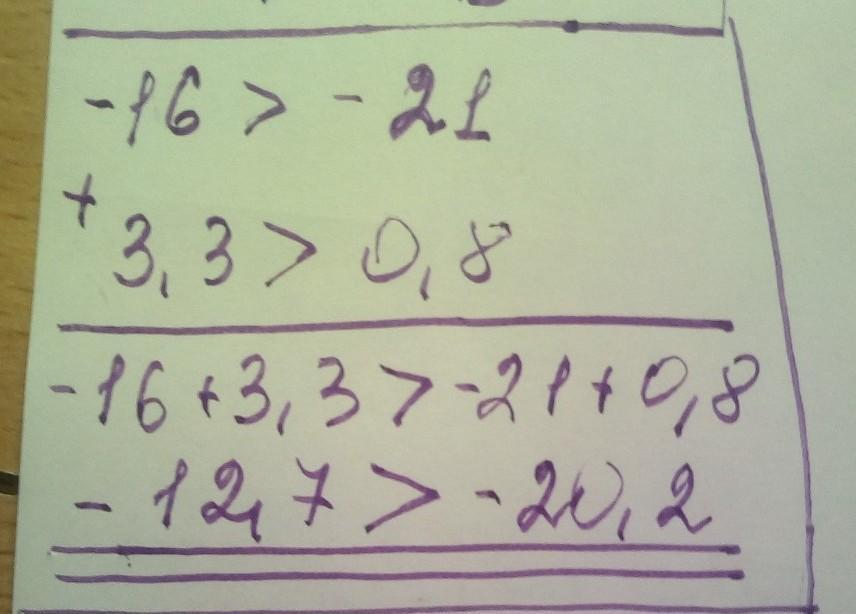 -16 > -21
+
3,3 > 0,8
-16+3,3 > -21+0,8
-12,7 > -20,2